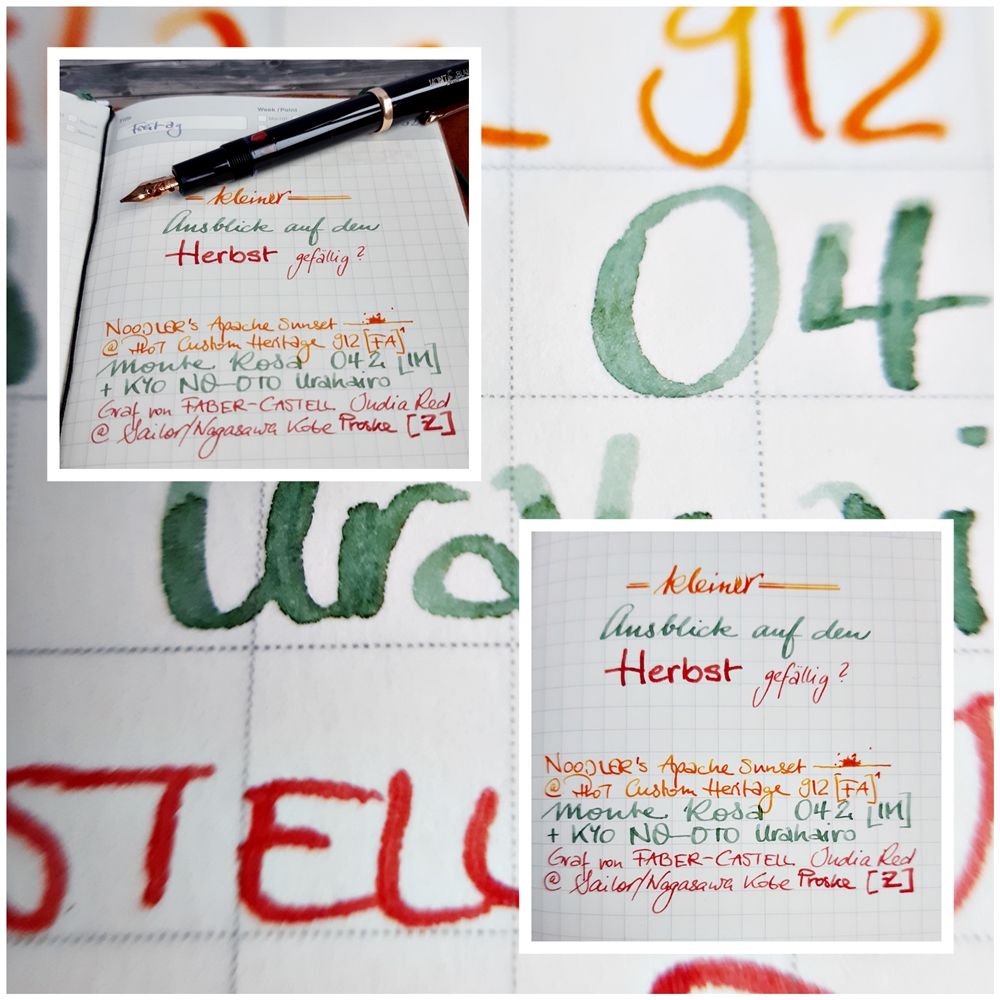 912
04
Week / Point
Freitag
kleiner
Ausblick auf den
Herbst gefällig?
NOODLER's Apache Sunset
@ PILOT Custom Heritage 912 [FA]
Monte Rosa 042 [IM]
+ KYO NO-OTO Urahairo
Graf von FABER-CASTELL India Red
@ Sailor/Nagasawa Kobe Proske [Z]
Ura
STELL
kleiner
Ausblick auf den
Herbst gefällig?
NOODLER's Apache Sunset
@ PILOT Custom Heritage 912 [FA]
Monte Rosa 042 [IM]
+ KYO NO-OTO Urahairo
Graf von FABER-CASTELL India Red
@ Sailor/Nagasawa Kobe Proske [Z]